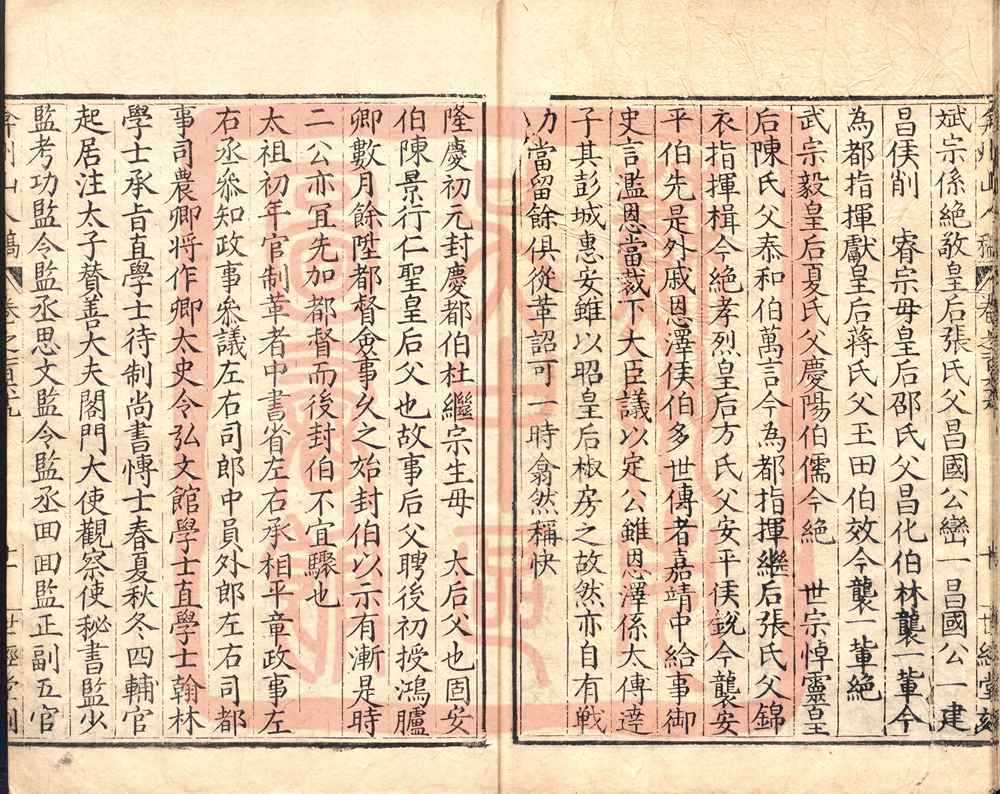 斌宗係絶敬皇后張氏父昌國公巒一昌國公一建
昌侯削　睿宗母皇后邵氏父昌化伯林襲一輩今
為都指揮獻皇后蔣氏父玉田伯效今襲一輩絶
武宗毅皇后夏氏父慶陽伯儒今絶　世宗悼靈皇
后陳氏父泰和伯萬言今為都指揮繼后張氏父錦
衣指揮楫今絶孝烈皇后方氏父安平侯銳今襲安
平伯先是外戚恩澤侯伯多世傳者嘉靖中給事御
史言濫恩當裁下大臣議以定公雖恩澤係太傅達
子其彭城惠安雖以昭皇后椒房之故然亦自有戦
功當留餘俱從革詔可一時翕然稱快
隆慶初元封慶都伯杜繼宗生母　太后父也固安
伯陳景行仁聖皇后父也故事后父聘後初授鴻臚
卿數月餘陞都督僉事久之始封伯以示有漸是時
二公亦冝先加都督而後封伯不宜驟也
太祖初年官制革者中書省左右丞相平章政事左
右丞叅知政事叅議左右司郎中員外郎左右司都
事司農卿將作卿太史令弘文館學士直學士翰林
學士承旨直學士待制尚書愽士春夏秋冬四輔官
起居注太子賛善大夫閣門大使觀察使秘書監少
監考功監令監丞思文監令監丞囬囬監正副五官
弇州山人稿　卷之一百六十九　十一　世經堂刻